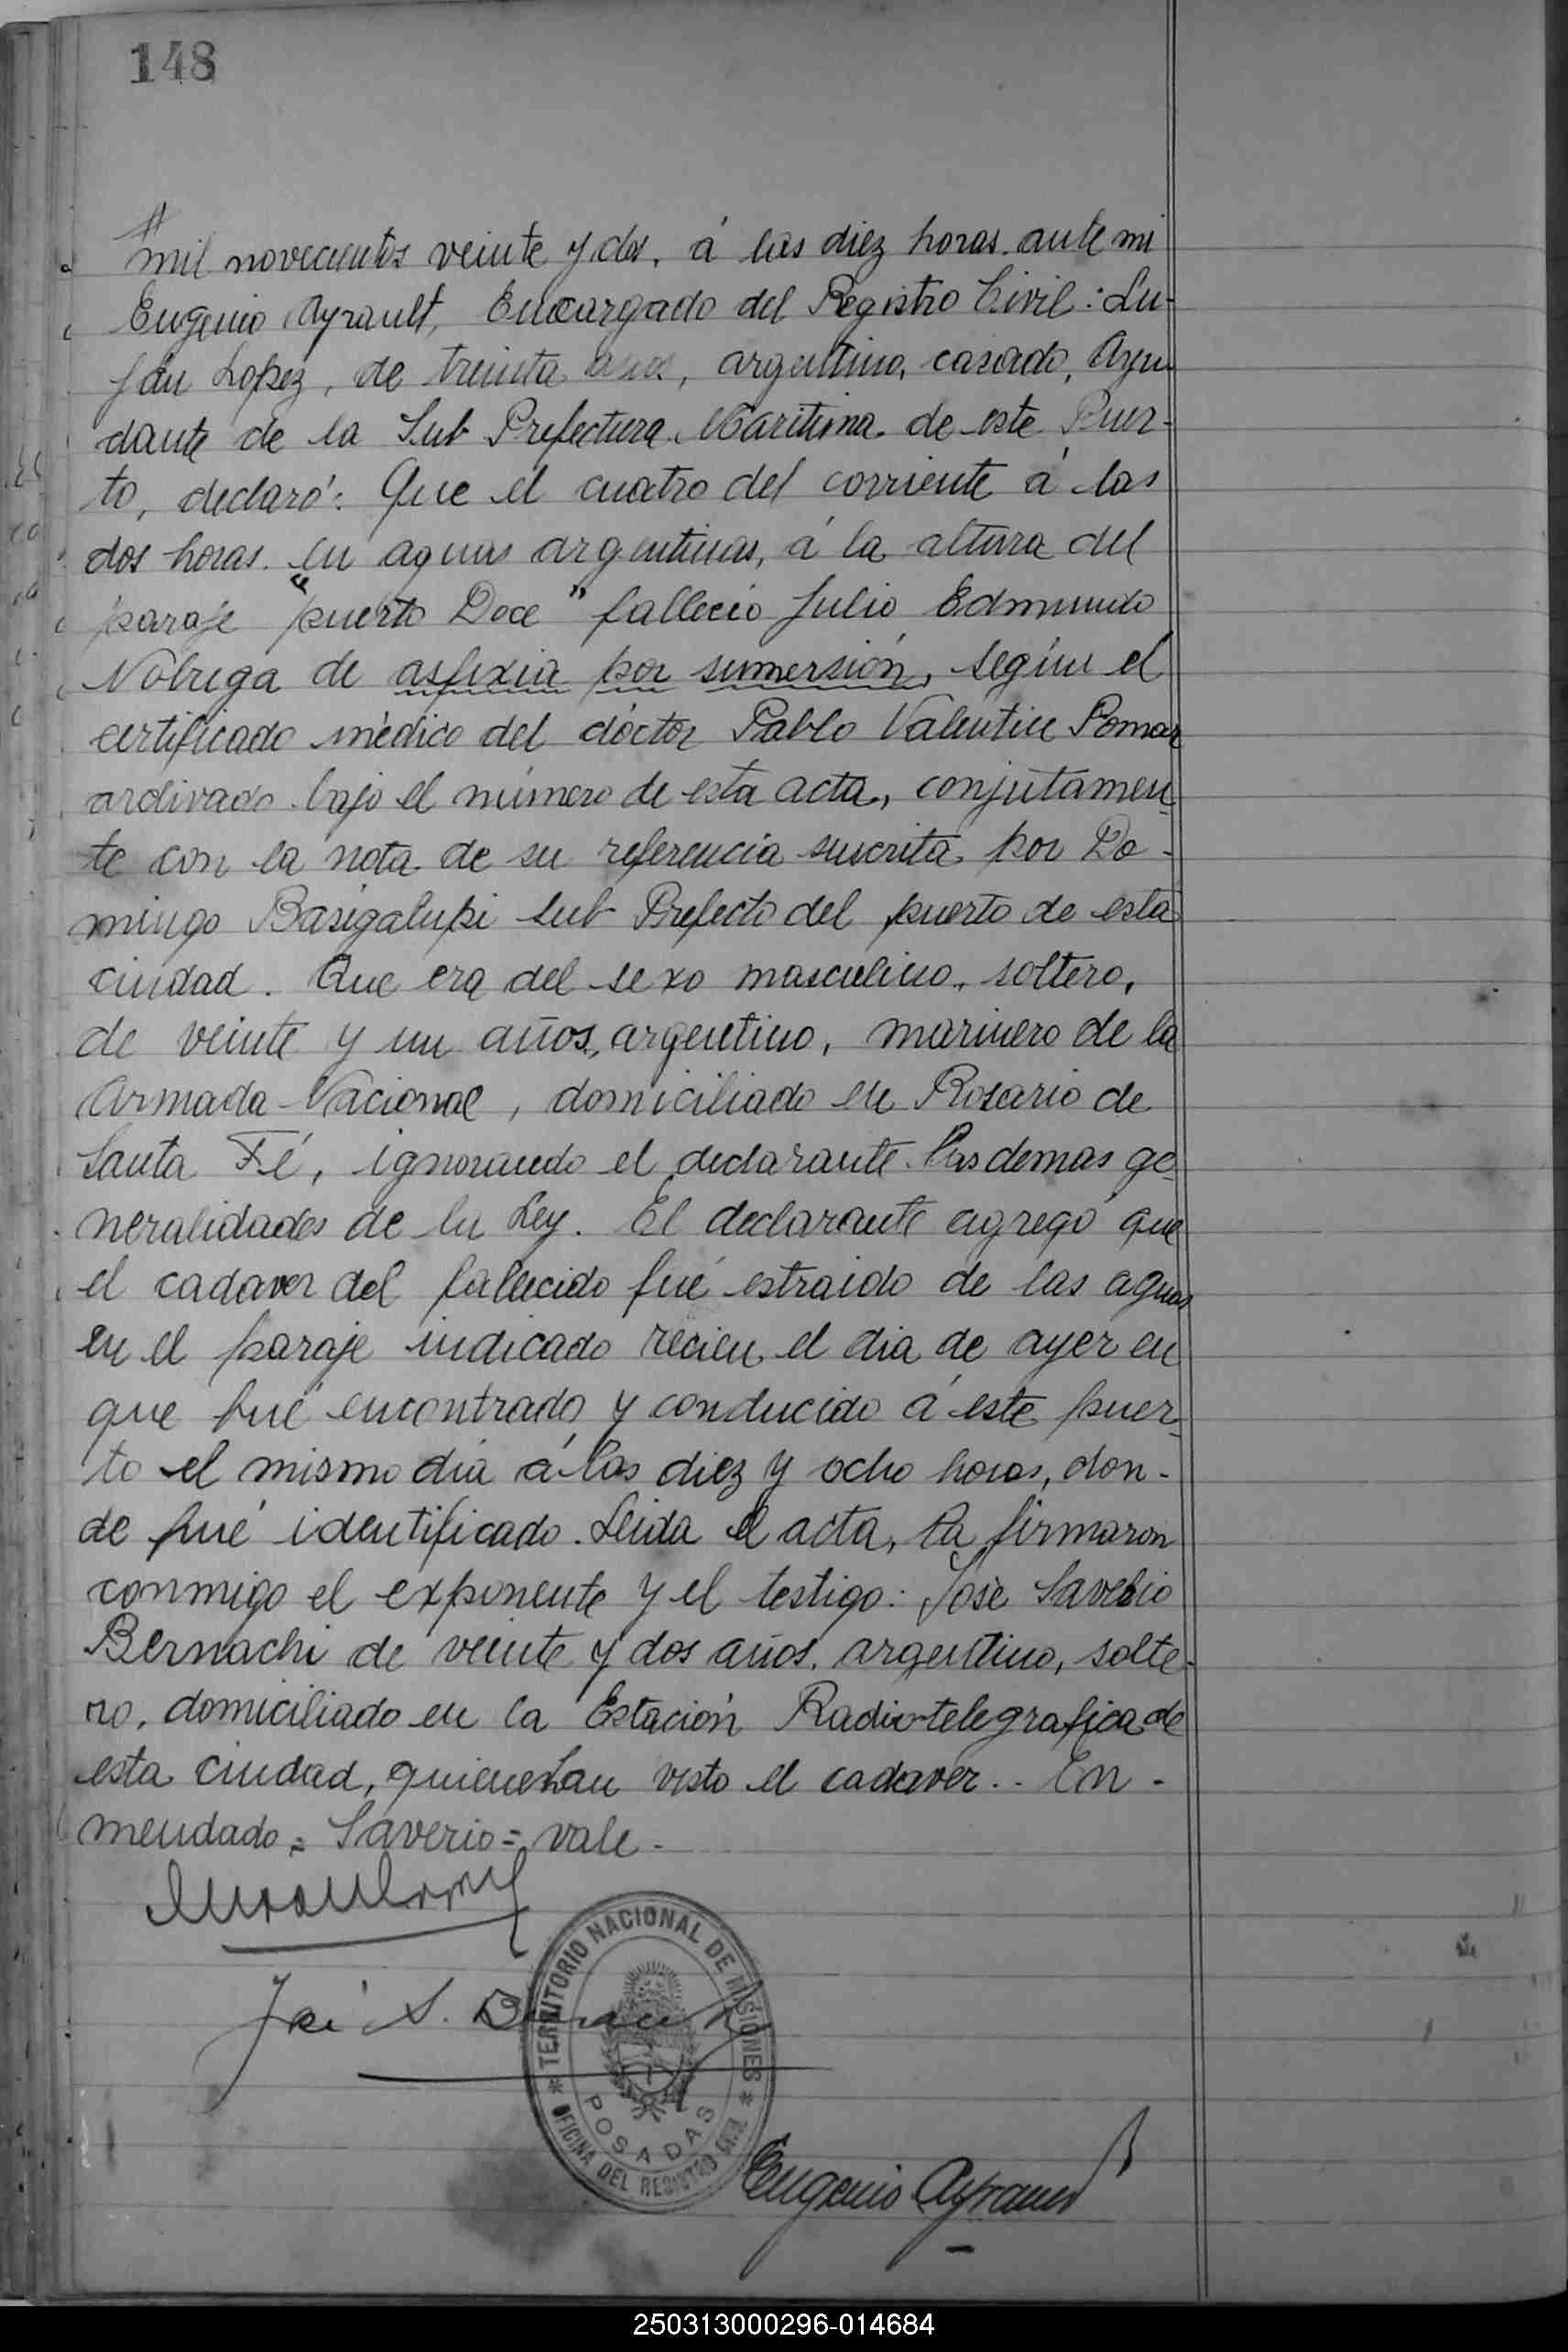 148
mil novecientos veinte y dos, á las diez horas, ante mi
Eugenio Ayrault, Encargado del Registro Civil: Lu-
ján Lopez, de treinta años, argentino, casado, Ayu-
dante de la Sub Prefectura Maritima de este Puer-
to, declaró: Que el cuatro del corriente á las
dos horas, en aguas argentinas, á la altura del
paraje "puerto Doce" fallecio Julio Edmundo
Nobrega de asfixia por sumersión, según el
certificado médico del dóctor Pablo Valentin Pomar
archivado bajo el número de esta acta, conjutamen-
te con la nota de su referencia suscrita por Do-
mingo Basigalupi Sub Prefecto del puerto de esta
ciudad. Que era del sexo masculino, soltero,
de veinte y un años, argentino, marinero de la
Armada Nacional, domiciliado en Rosario de
Santa Fé, ignorando el declarante las demas ge-
neralidades de la Ley. El declarante agregó que
el cadaver del fallecido fué estraido de las aguas
en el paraje indicado recien el dia de ayer en
que fué encontrado y conducido á este puer-
to el mismo dia á las diez y ocho horas, don-
de fué identificado. Leida el acta, la firmaron
conmigo el exponente y el testigo: José Saverio
Bernachi de veinte y dos años, argentino, solte-
ro, domiciliado en la Estación Radiotelegrafica de
esta ciudad, quienes han visto el cadaver.. En-
mendado = Saverio = vale.
José S. Bernachi
TERRITORIO NACIONAL DE MISIONES
POSADAS
OFICINA DEL REGISTRO CIVIL
Eugenio Ayrault
250313000296-014684